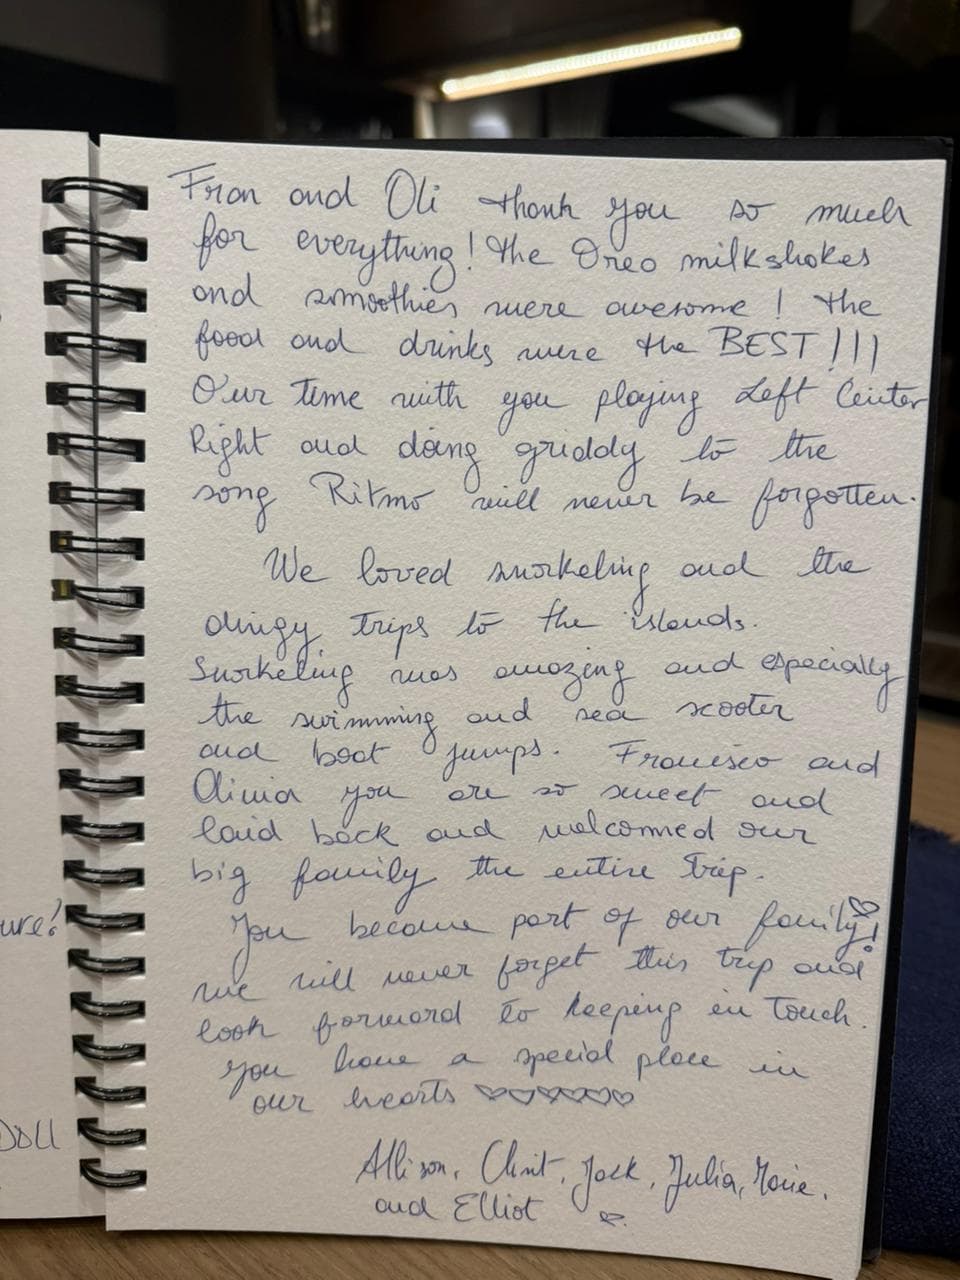 Fran and Oli thank you so much
for everything! the Oreo milkshakes
and smoothies were awesome! the
food and drinks were the BEST!!!
Our time with you playing Left Center
Right and doing griddy to the
song Ritmo will never be forgotten.
We loved snorkeling and the
dingy trips to the islands.
Snorkeling was amazing and especially
the swimming and sea scooter
and boat jumps. Francisco and
Olivia you are so sweet and
laid back and welcomed our
big family the entire trip.
You became part of our family!
we will never forget this trip and
look forward to keeping in touch.
you have a special place in
our hearts ♡♡♡♡♡♡
Allison, Clint, Jack, Julia,
and Elliot
ure!
DOLL